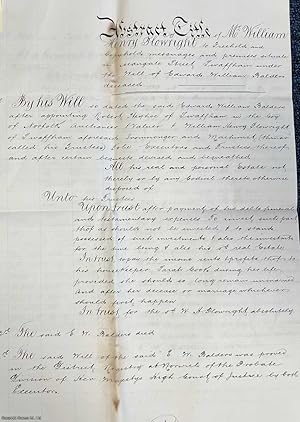 Abstract of Title of Mr William
Henry Plowright to freehold and
messuages and premises situate
in Street Swaffham under
the Will of Edward William Balders
deceased
By his Will so dated the said Edward William Balders
after appointing Robert of Swaffham in the Coy
of Norfolk Auctioneer & Valuer & William Henry Plowright
of Swaffham aforesaid Ironmonger and Machinist (therein
called his Trustees) to be Executors and Trustees thereof
and after certain bequests devised and bequeathed
All his real and personal Estate not
thereby or by any Codicil thereto otherwise
disposed of
Unto his Trustees
Upon trust after payment of his debts funeral
and testamentary expenses To invest such part
thof as should not be invested & to stand
possessed of such investments & also the
for the time being & also his sd real Estate
In trust to pay the income rents & profits thof to
his housekeeper Sarah Cook during her life
provided she should so long remain unmarried
and after her decease or marriage whichever
should first happen
In trust for the sd W. H. Plowright absolutely
The said E. W. Balders died
The said Will of the said E. W. Balders was proved
in the District Registry at Norwich of the Probate
Division of Her Majestys High Court of Justice by both
Executors